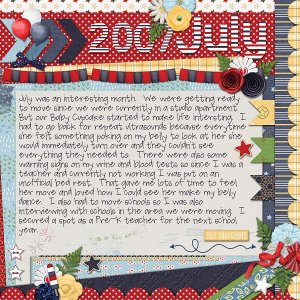 2007July
July was an interesting month. We were getting ready
to move since we were currently in a studio apartment.
But our Baby Cupcake started to make life intersting. I
had to go back for repeat ultrasounds because everytime
she felt something poking on my belly to look at her she
would immediately turn over and they couldn't see
everything they needed to. There were also some
alarming signs on my urine and blood tests so since I was a
teacher and currently not working I was put on an
unofficial bed rest. That gave me lots of time to feel
her move and loved how I could see her make my belly
dance. I also had to move schools so I was also
interviewing with schools in the area we were moving. I
secured a spot as a Pre-K teacher for the next school
year.
JULY SNAPSHOTS